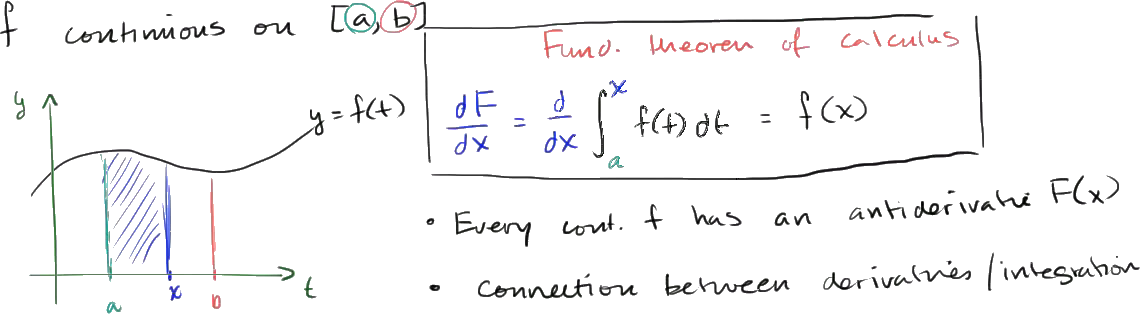 f continuous on [a, b]
Fund. theorem of calculus
dF/dx = d/dx ∫_a^x f(t) dt = f(x)
y
y = f(t)
a
x
b
t
• Every cont. f has an antiderivative F(x)
• connection between derivatives/integration